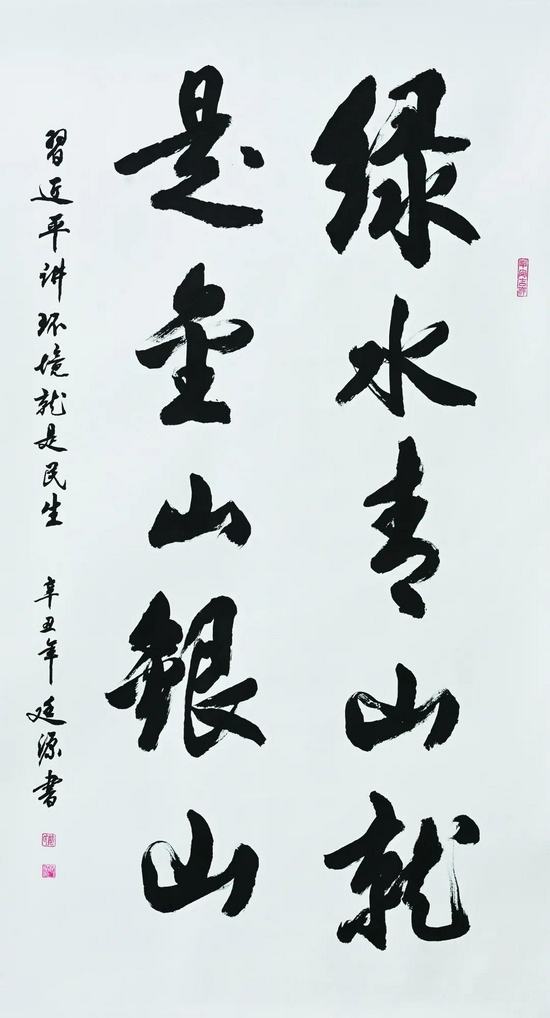 绿水青山就
是金山銀山
習近平讲环境就是民生 辛丑年廷源書